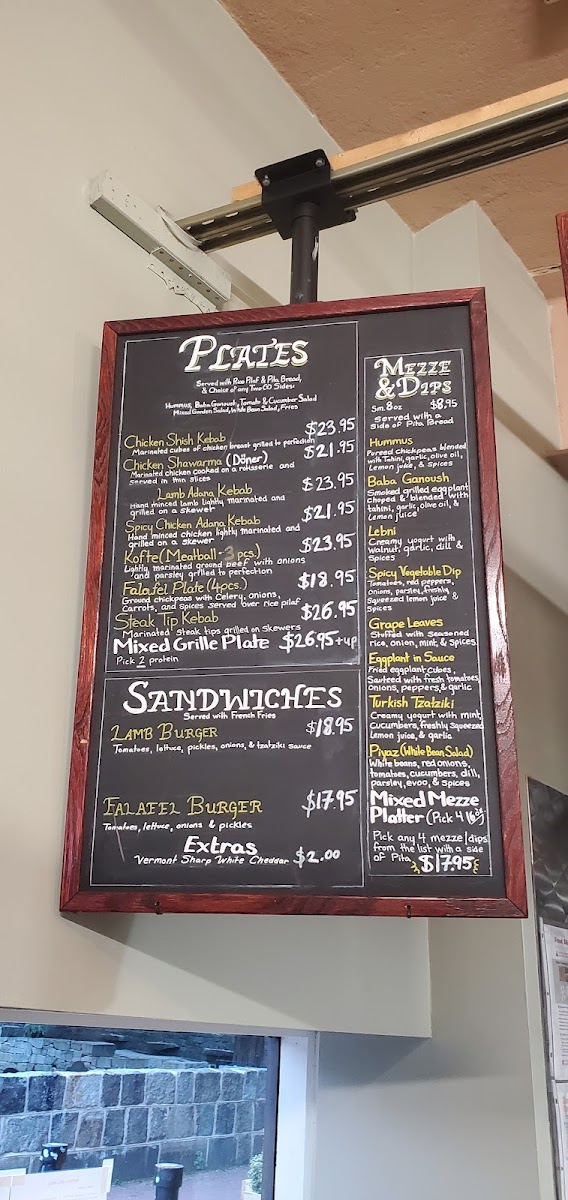 PLATES
Served with Rice Pilaf & Pita Bread,
& Choice of any Two (2) Sides:
Hummus, Baba Ganoush, Tomato & Cucumber Salad
Mixed Garden Salad, White Bean Salad, Fries
Chicken Shish Kebab $23.95
Marinated cubes of chicken breast grilled to perfection
Chicken Shawarma (Döner) $21.95
Marinated chicken cooked on a rotisserie and
served in thin slices
Lamb Adana Kebab $23.95
Hand minced lamb lightly marinated and
grilled on a skewer
Spicy Chicken Adana Kebab $21.95
Hand minced chicken lightly marinated and
grilled on a skewer
Kofte (Meatball - 3 pcs.) $23.95
Lightly marinated ground beef with onions
and parsley grilled to perfection
Falafel Plate (4pcs.) $18.95
Ground chickpeas with Celery, onions,
Carrots, and Spices served over rice pilaf
Steak Tip Kebab $26.95
Marinated steak tips grilled on skewers
Mixed Grille Plate $26.95+up
Pick 2 protein
SANDWICHES
Served with French Fries
LAMB BURGER $18.95
Tomatoes, lettuce, pickles, onions, & tzatziki sauce
FALAFEL BURGER $17.95
Tomatoes, lettuce, onions & pickles
Extras
Vermont Sharp White Cheddar $2.00
MEZZE
& DIPS
Sm. 8oz $8.95
served with a
side of Pita Bread
Hummus
Pureed chickpeas blended
with Tahini, garlic, olive oil,
Lemon juice, & Spices
Baba Ganoush
Smoked grilled eggplant
Choped & blended with
tahini, garlic, olive oil, &
Lemon juice
Lebni
Creamy yogurt with
Walnut, garlic, dill &
Spices
Spicy Vegetable Dip
Tomatoes, red peppers,
onions, parsley, freshly
Squeezed lemon juice &
Spices
Grape Leaves
Stuffed with seasoned
rice, onion, mint, & spices
Eggplant in Sauce
Fried eggplant cubes
Sauteed with fresh tomatoes,
onions, peppers, & garlic
Turkish Tzatziki
Creamy yogurt with mint,
Cucumbers, freshly Squeezed
Lemon juice, & garlic
Piyaz (White Bean Salad)
White beans, red onions,
tomatoes, cucumbers, dill,
parsley, evoo, & spices
Mixed Mezze
Platter (Pick 4
Pick any 4 mezze/dips
from the list with a side
of Pita $17.95